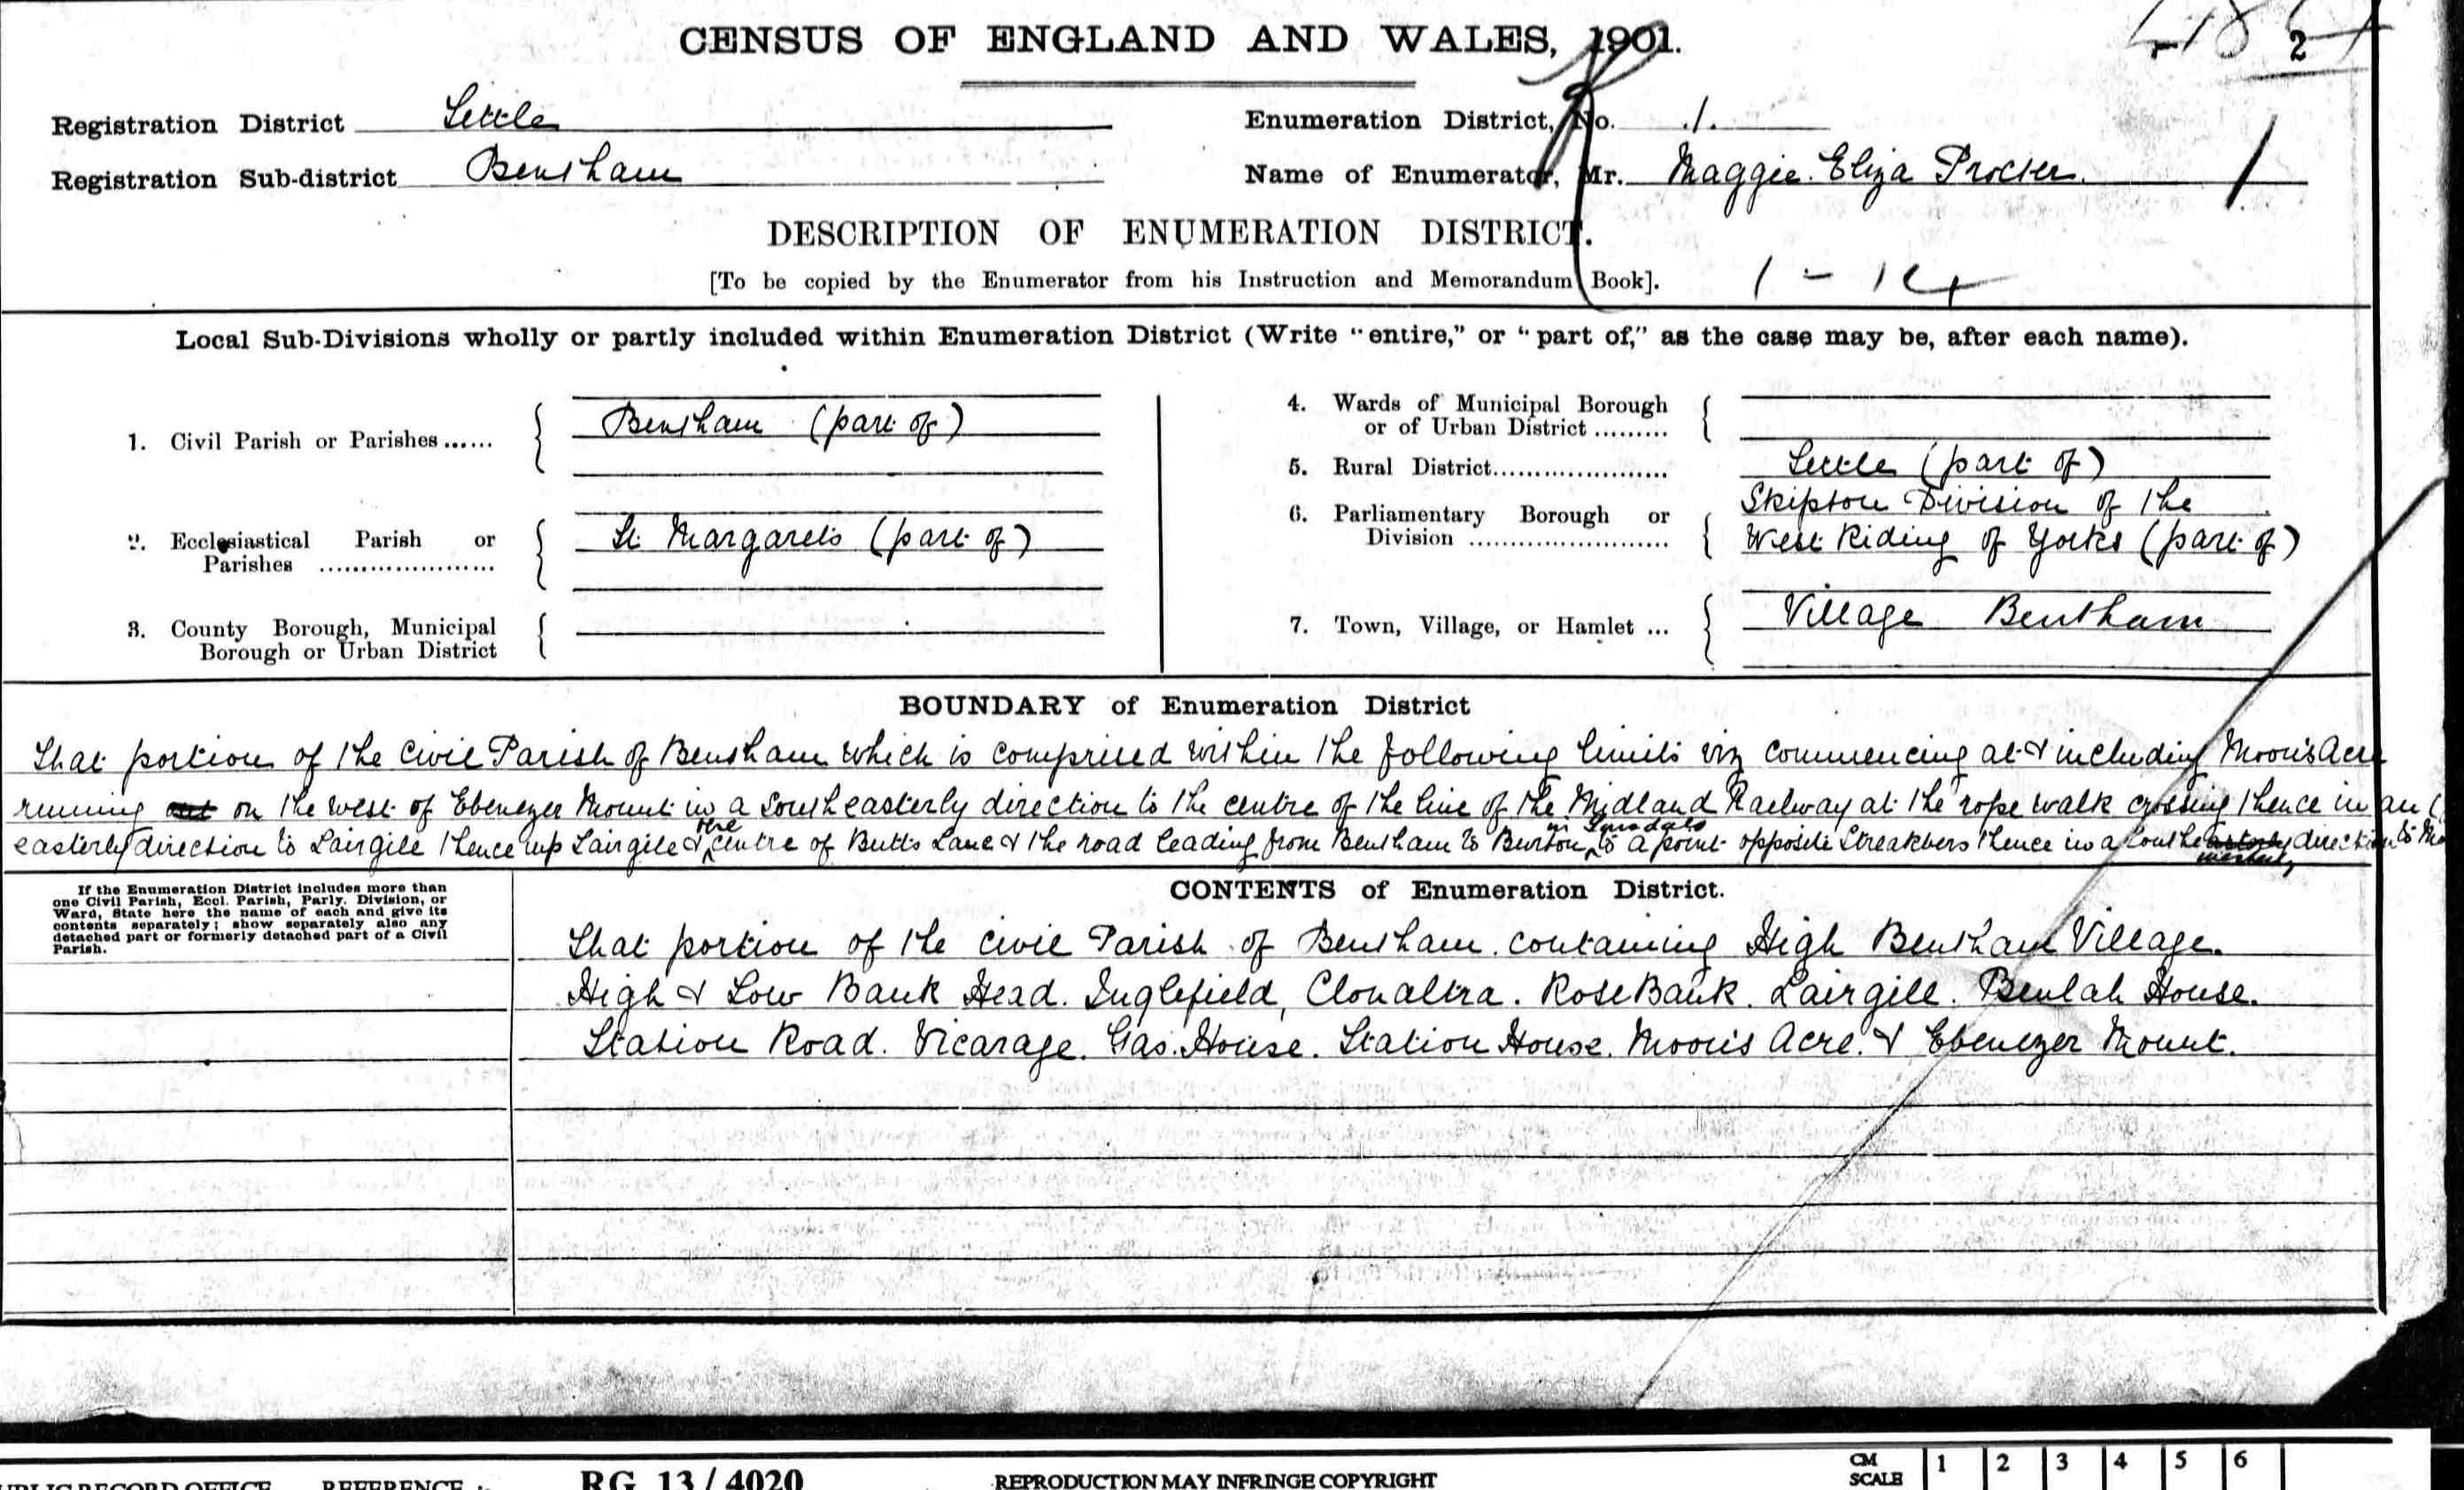 CENSUS OF ENGLAND AND WALES, 1901.
2
Registration District Settle
Enumeration District, No. 1.
Registration Sub-district Bentham
Name of Enumerator, Mr. Maggie Eliza Procter.
1
DESCRIPTION OF ENUMERATION DISTRICT.
[To be copied by the Enumerator from his Instruction and Memorandum Book].
1 - 14
Local Sub-Divisions wholly or partly included within Enumeration District (Write "entire," or "part of," as the case may be, after each name).
1. Civil Parish or Parishes ......
Bentham (part of)
2. Ecclesiastical Parish or
Parishes .....................
St Margarets (part of)
3. County Borough, Municipal
Borough or Urban District
4. Wards of Municipal Borough
or of Urban District .........
5. Rural District.....................
Settle (part of)
6. Parliamentary Borough or
Division ........................
Skipton Division of the
West Riding of Yorks (part of)
7. Town, Village, or Hamlet ...
Village Bentham
BOUNDARY of Enumeration District
That portion of the Civil Parish of Bentham which is comprised within the following limits viz commencing at & including Moon's Acre
running out on the west of Ebenezer Mount in a South easterly direction to the centre of the line of the Midland Railway at the rope walk crossing thence in an
easterly direction to Lairgill thence up Lairgill & the centre of Butts Lane & the road leading from Bentham to Burton in Lonsdale to a point opposite Streakbers thence in a South easterly westerly direction to
If the Enumeration District includes more than
one Civil Parish, Eccl. Parish, Parly. Division, or
Ward, State here the name of each and give its
contents separately; show separately also any
detached part or formerly detached part of a Civil
Parish.
CONTENTS of Enumeration District.
That portion of the Civil Parish of Bentham containing High Bentham Village.
High & Low Bank Head. Inglefield, Clonaltra. Rose Bank. Lairgill. Beulah House.
Station Road. Vicarage. Gas House. Station House. Moon's Acre. & Ebenezer Mount.
PUBLIC RECORD OFFICE REFERENCE :- RG 13 / 4020
REPRODUCTION MAY INFRINGE COPYRIGHT
CM
SCALE
1 2 3 4 5 6